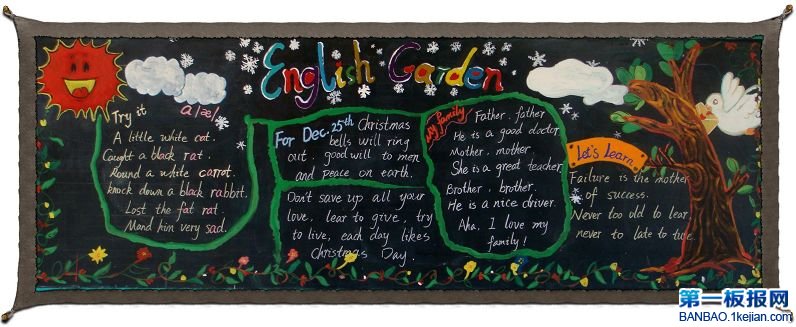 English Garden
Try it
a/æ/
A little white cat.
Caught a black rat.
Round a white carrot.
knock down a black rabbit.
Lost the fat rat.
Mand him very sad.
For Dec. 25th Christmas
bells will ring
out. good will to men
and peace on earth.
Don't save up all your
love, lear to give, try
to live, each day likes
Christmas Day.
My family
Father, father
He is a good doctor
Mother, mother.
She is a great teacher
Brother, brother.
He is a nice driver.
Aha, I love my
family!
Let's Learn
Failure is the mother
of success.
Never too old to lear,
never to late to ture.
第一板报网
BANBAO.1kejian.com